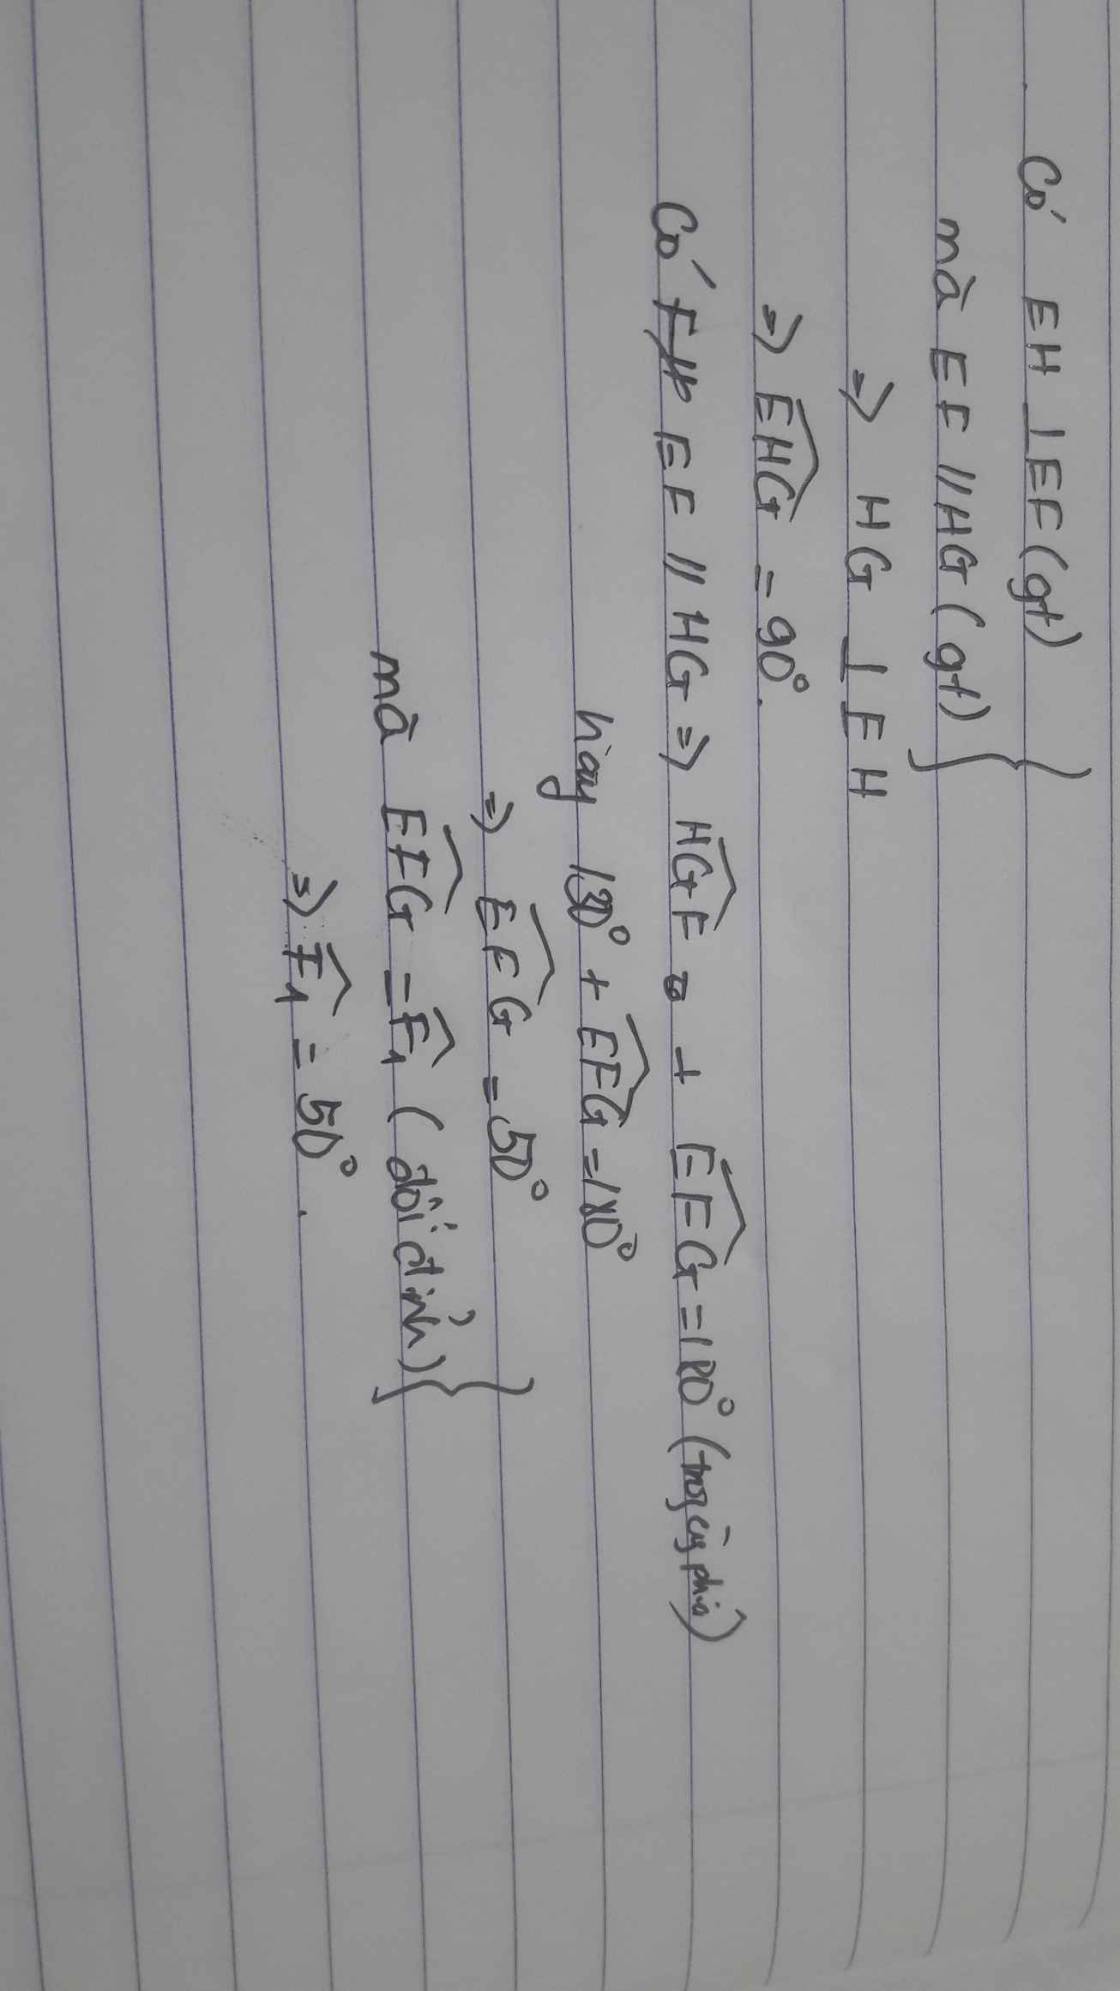 Có EH ⊥ EF (gt)
mà EF // HG (gt) }
⇒ HG ⊥ EH
⇒ \widehat{EHG} = 90°.
Có EF // HG ⇒ \widehat{HGF} + \widehat{EFG} = 180° (trong cùng phía)
hay 130° + \widehat{EFG} = 180°
⇒ \widehat{EFG} = 50°
mà \widehat{EFG} = \widehat{F₁} (đối đỉnh) }
⇒ \widehat{F₁} = 50°.